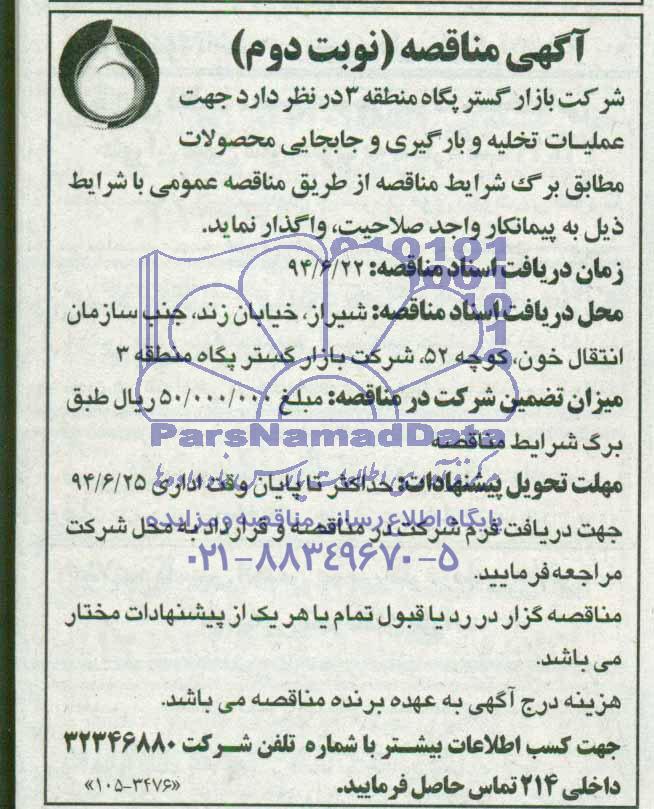 آگهی مناقصه (نوبت دوم)
شرکت بازار گستر پگاه منطقه ۳ در نظر دارد جهت
عملیات تخلیه و بارگیری و جابجایی محصولات
مطابق برگ شرایط مناقصه از طریق مناقصه عمومی با شرایط
ذیل به پیمانکار واجد صلاحیت، واگذار نماید.
زمان دریافت اسناد مناقصه: ۹۴/۶/۲۲
محل دریافت اسناد مناقصه: شیراز، خیابان زند، جنب سازمان
انتقال خون، کوچه ۵۲، شرکت بازار گستر پگاه منطقه ۳
میزان تضمین شرکت در مناقصه: مبلغ ۵۰/۰۰۰/۰۰۰ ریال طبق
ParsNamadData
برگ شرایط مناقصه
مهلت تحویل پیشنهادات: حداکثر تا پایان وقت اداری ۹۴/۶/۲۵
پایگاه اطلاع رسانی مناقصه و مزایده
جهت دریافت فرم شرکت در مناقصه و قرارداد به محل شرکت
۰۲۱-۸۸۳۴۹۶۷۰-۵
مراجعه فرمایید.
مناقصه گزار در رد یا قبول تمام یا هر یک از پیشنهادات مختار
می باشد.
هزینه درج آگهی به عهده برنده مناقصه می باشد.
جهت کسب اطلاعات بیشتر با شماره تلفن شرکت ۳۲۳۴۶۸۸۰
داخلی ۲۱۴ تماس حاصل فرمایید.
«۱۰۵-۳۴۷۶»